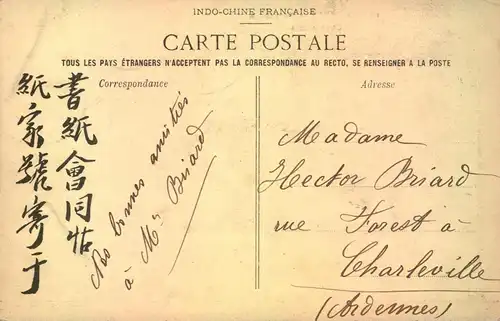 INDO-CHINE FRANÇAISE
CARTE POSTALE
TOUS LES PAYS ÉTRANGERS N'ACCEPTENT PAS LA CORRESPONDANCE AU RECTO, SE RENSEIGNER A LA POSTE
Correspondance
Adresse
書紙會同帖
紙家號寄于
Nos bonnes amitiés
à Mr Briard
Madame
Hector Briard
rue Forest à
Charleville
(Ardennes)